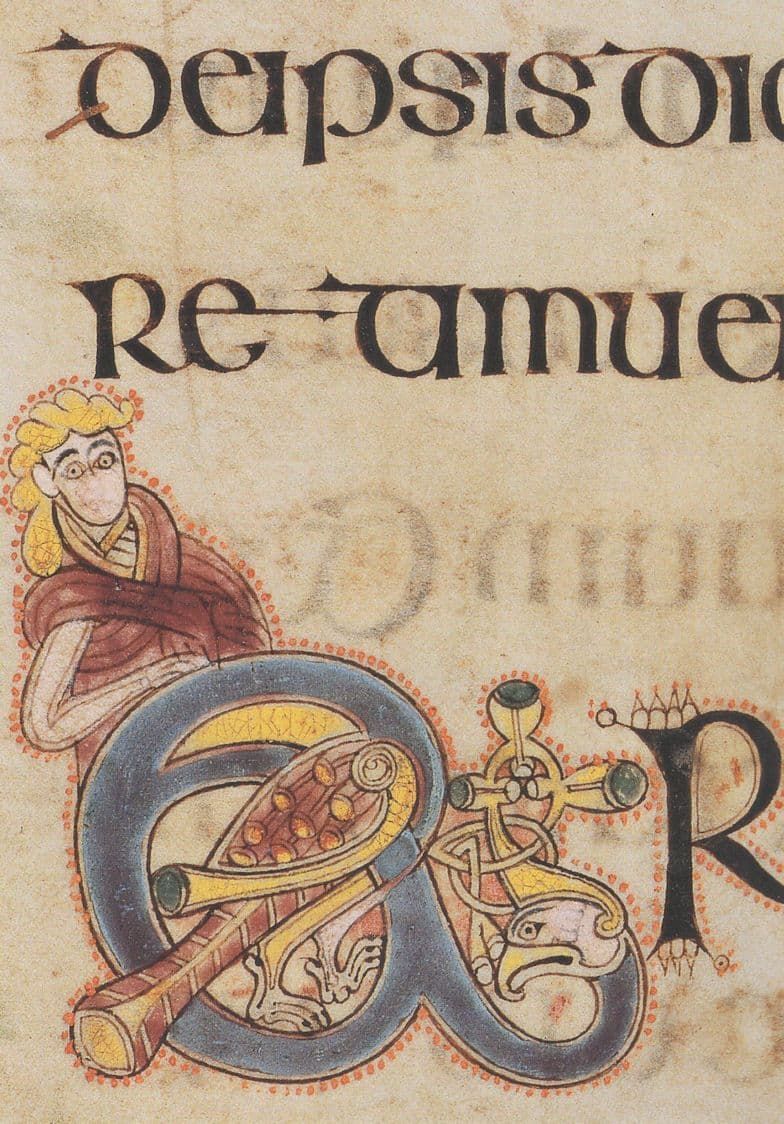 deipsis dic
re amue
aR